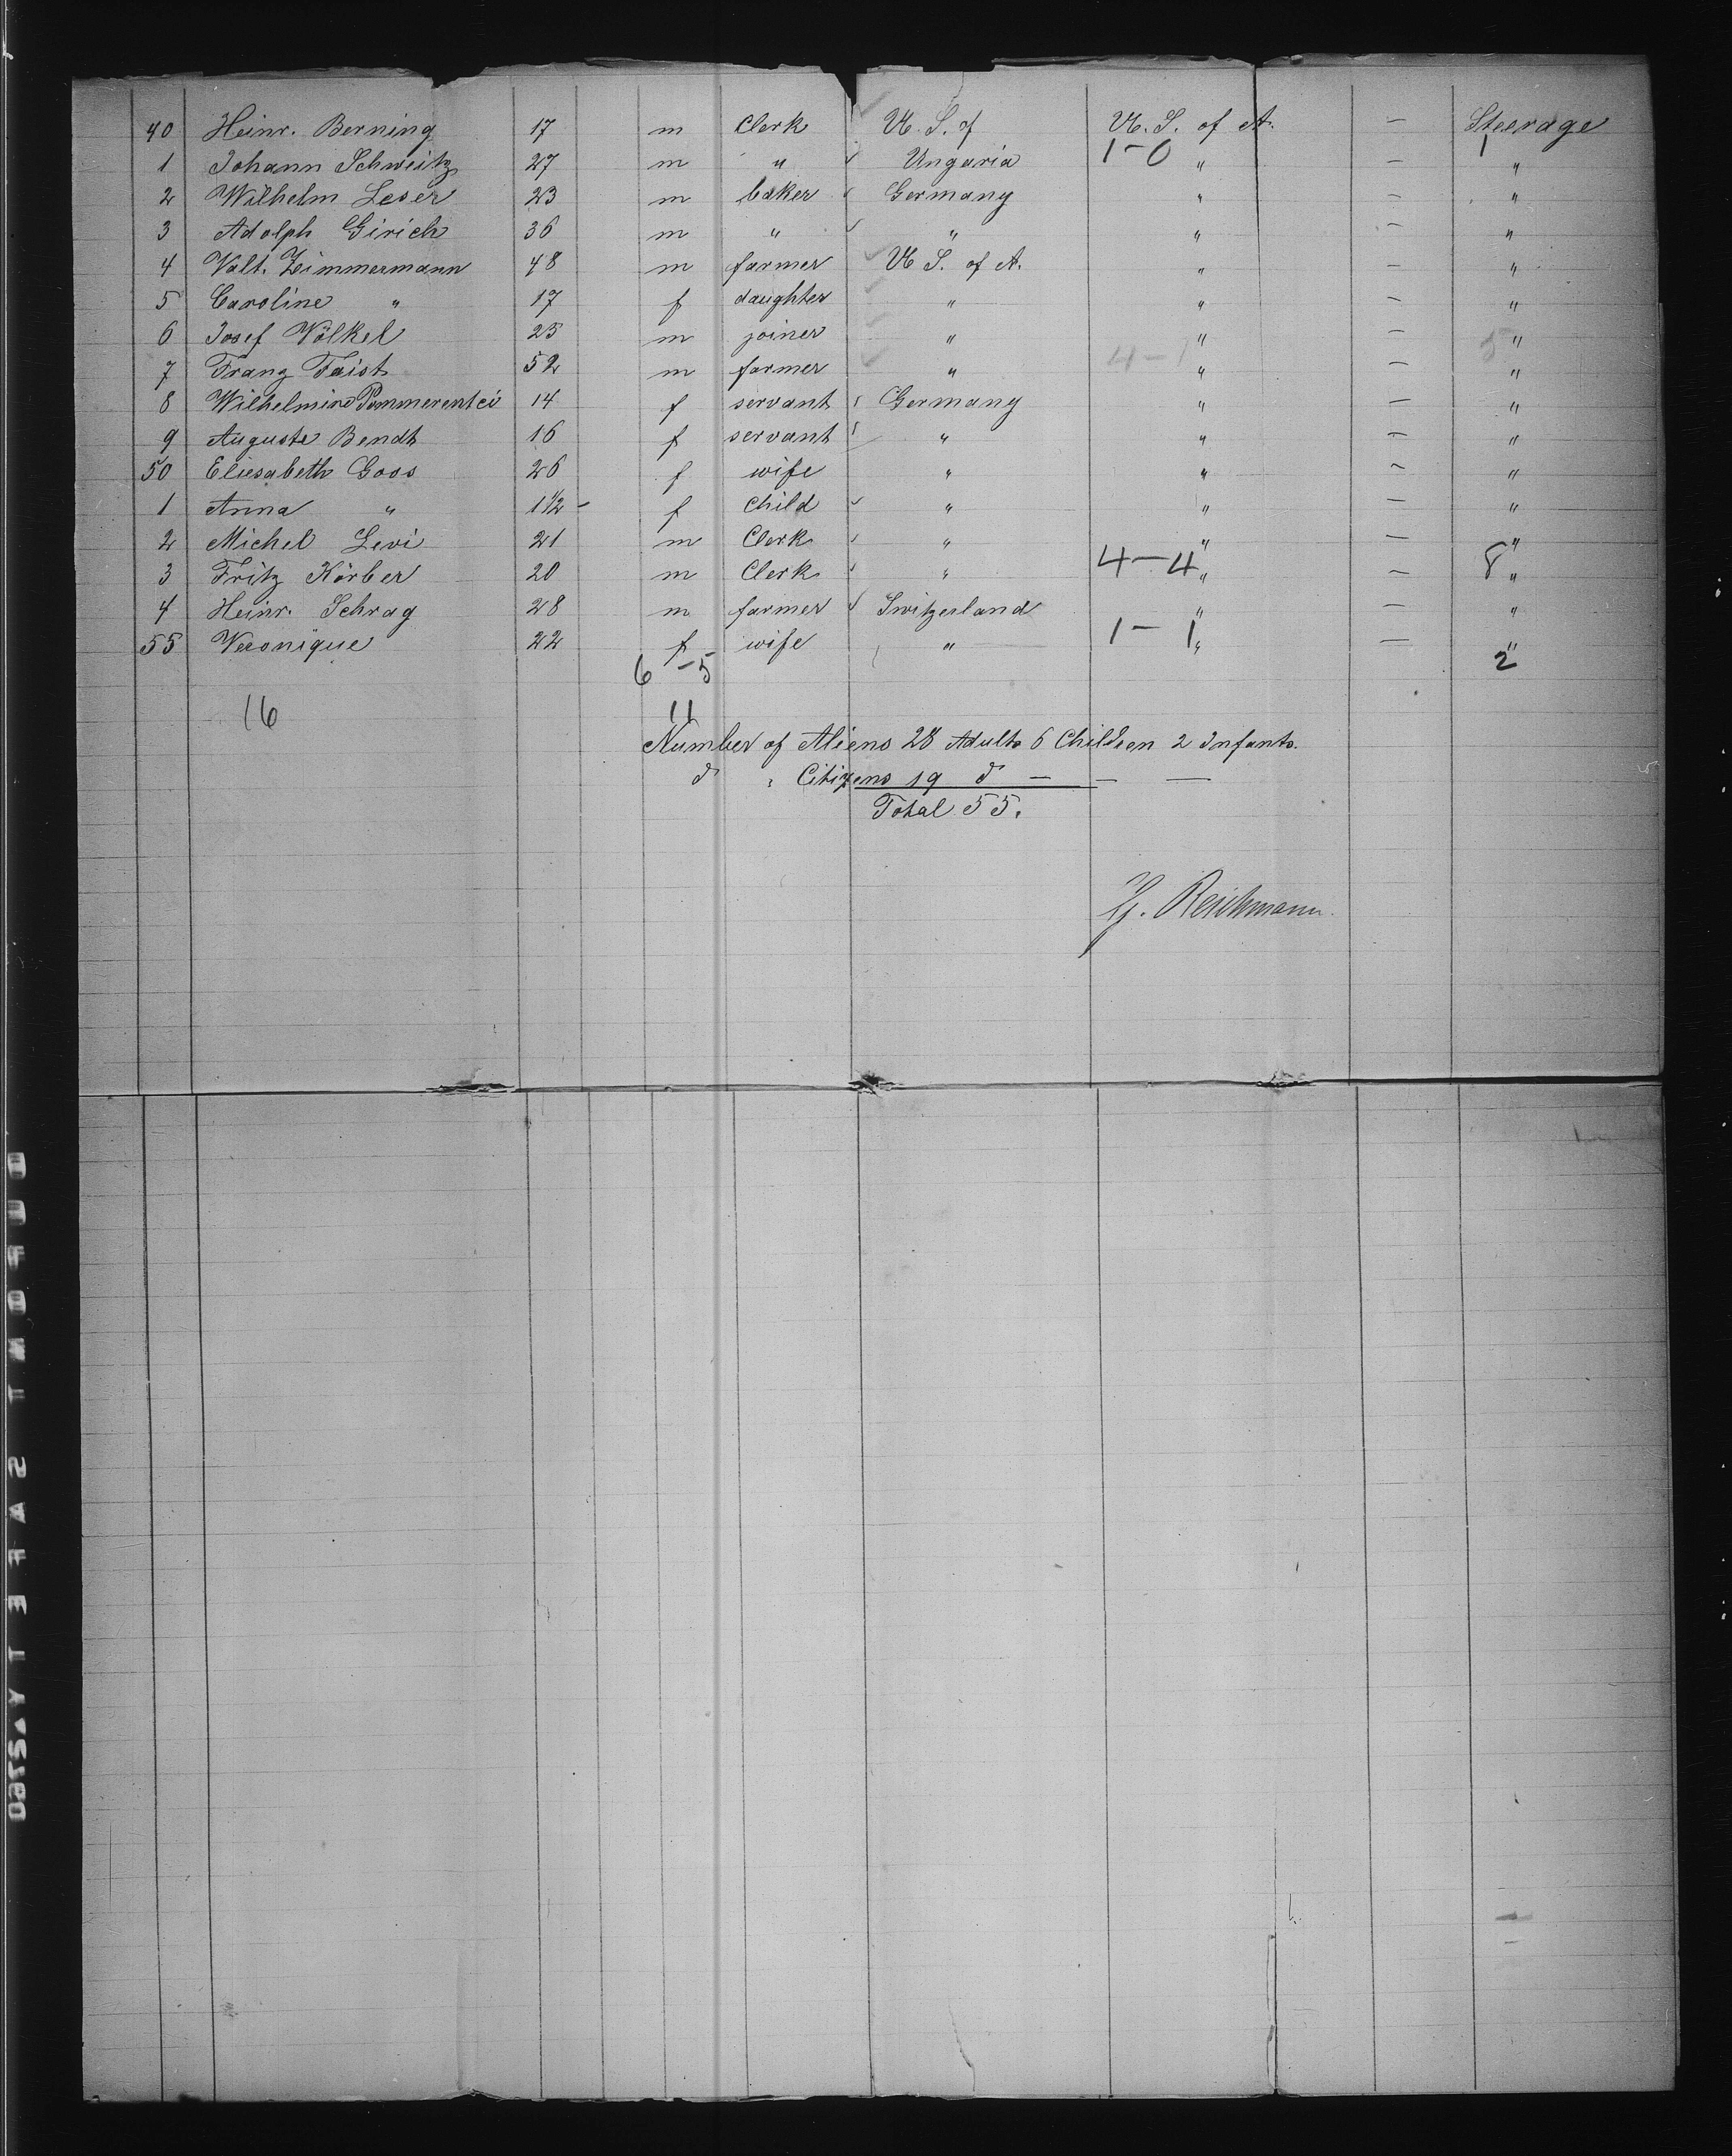 40 Heinr. Berning 17 m Clerk U. S. of U. S. of A. — Steerage
1 Johann Schweitz 27 m " Ungaria 1-0 " — 1 "
2 Wilhelm Leser 23 m baker Germany " — "
3 Adolph Girich 36 m " " " — "
4 Valt. Zimmermann 48 m farmer U S. of A. " — "
5 Caroline " 17 f daughter " " — "
6 Josef Völkel 25 m joiner " " — "
7 Franz Faist 52 m farmer " 4-1 " — 5 "
8 Wilhelmine 14 f servant Germany " — "
9 Auguste Bendt 16 f servant " " — "
50 Eliesabeth Goos 26 f wife " " — "
1 Anna " 1 1/2 - f Child " " — "
2 Michel Levi 21 m Clerk " " — "
3 Fritz Körber 20 m Clerk " 4-4 " — 8 "
4 Heinr. Schrag 28 m farmer Switzerland " — "
55 Veronique 22 f wife " 1-1 " — 2 "
6 -5
16 11
Number of Aliens 28 Adults 6 Children 2 Infants.
d " Citizens 19 d — — —
Total 55.
Reichmann.
DUPONT SAFETY